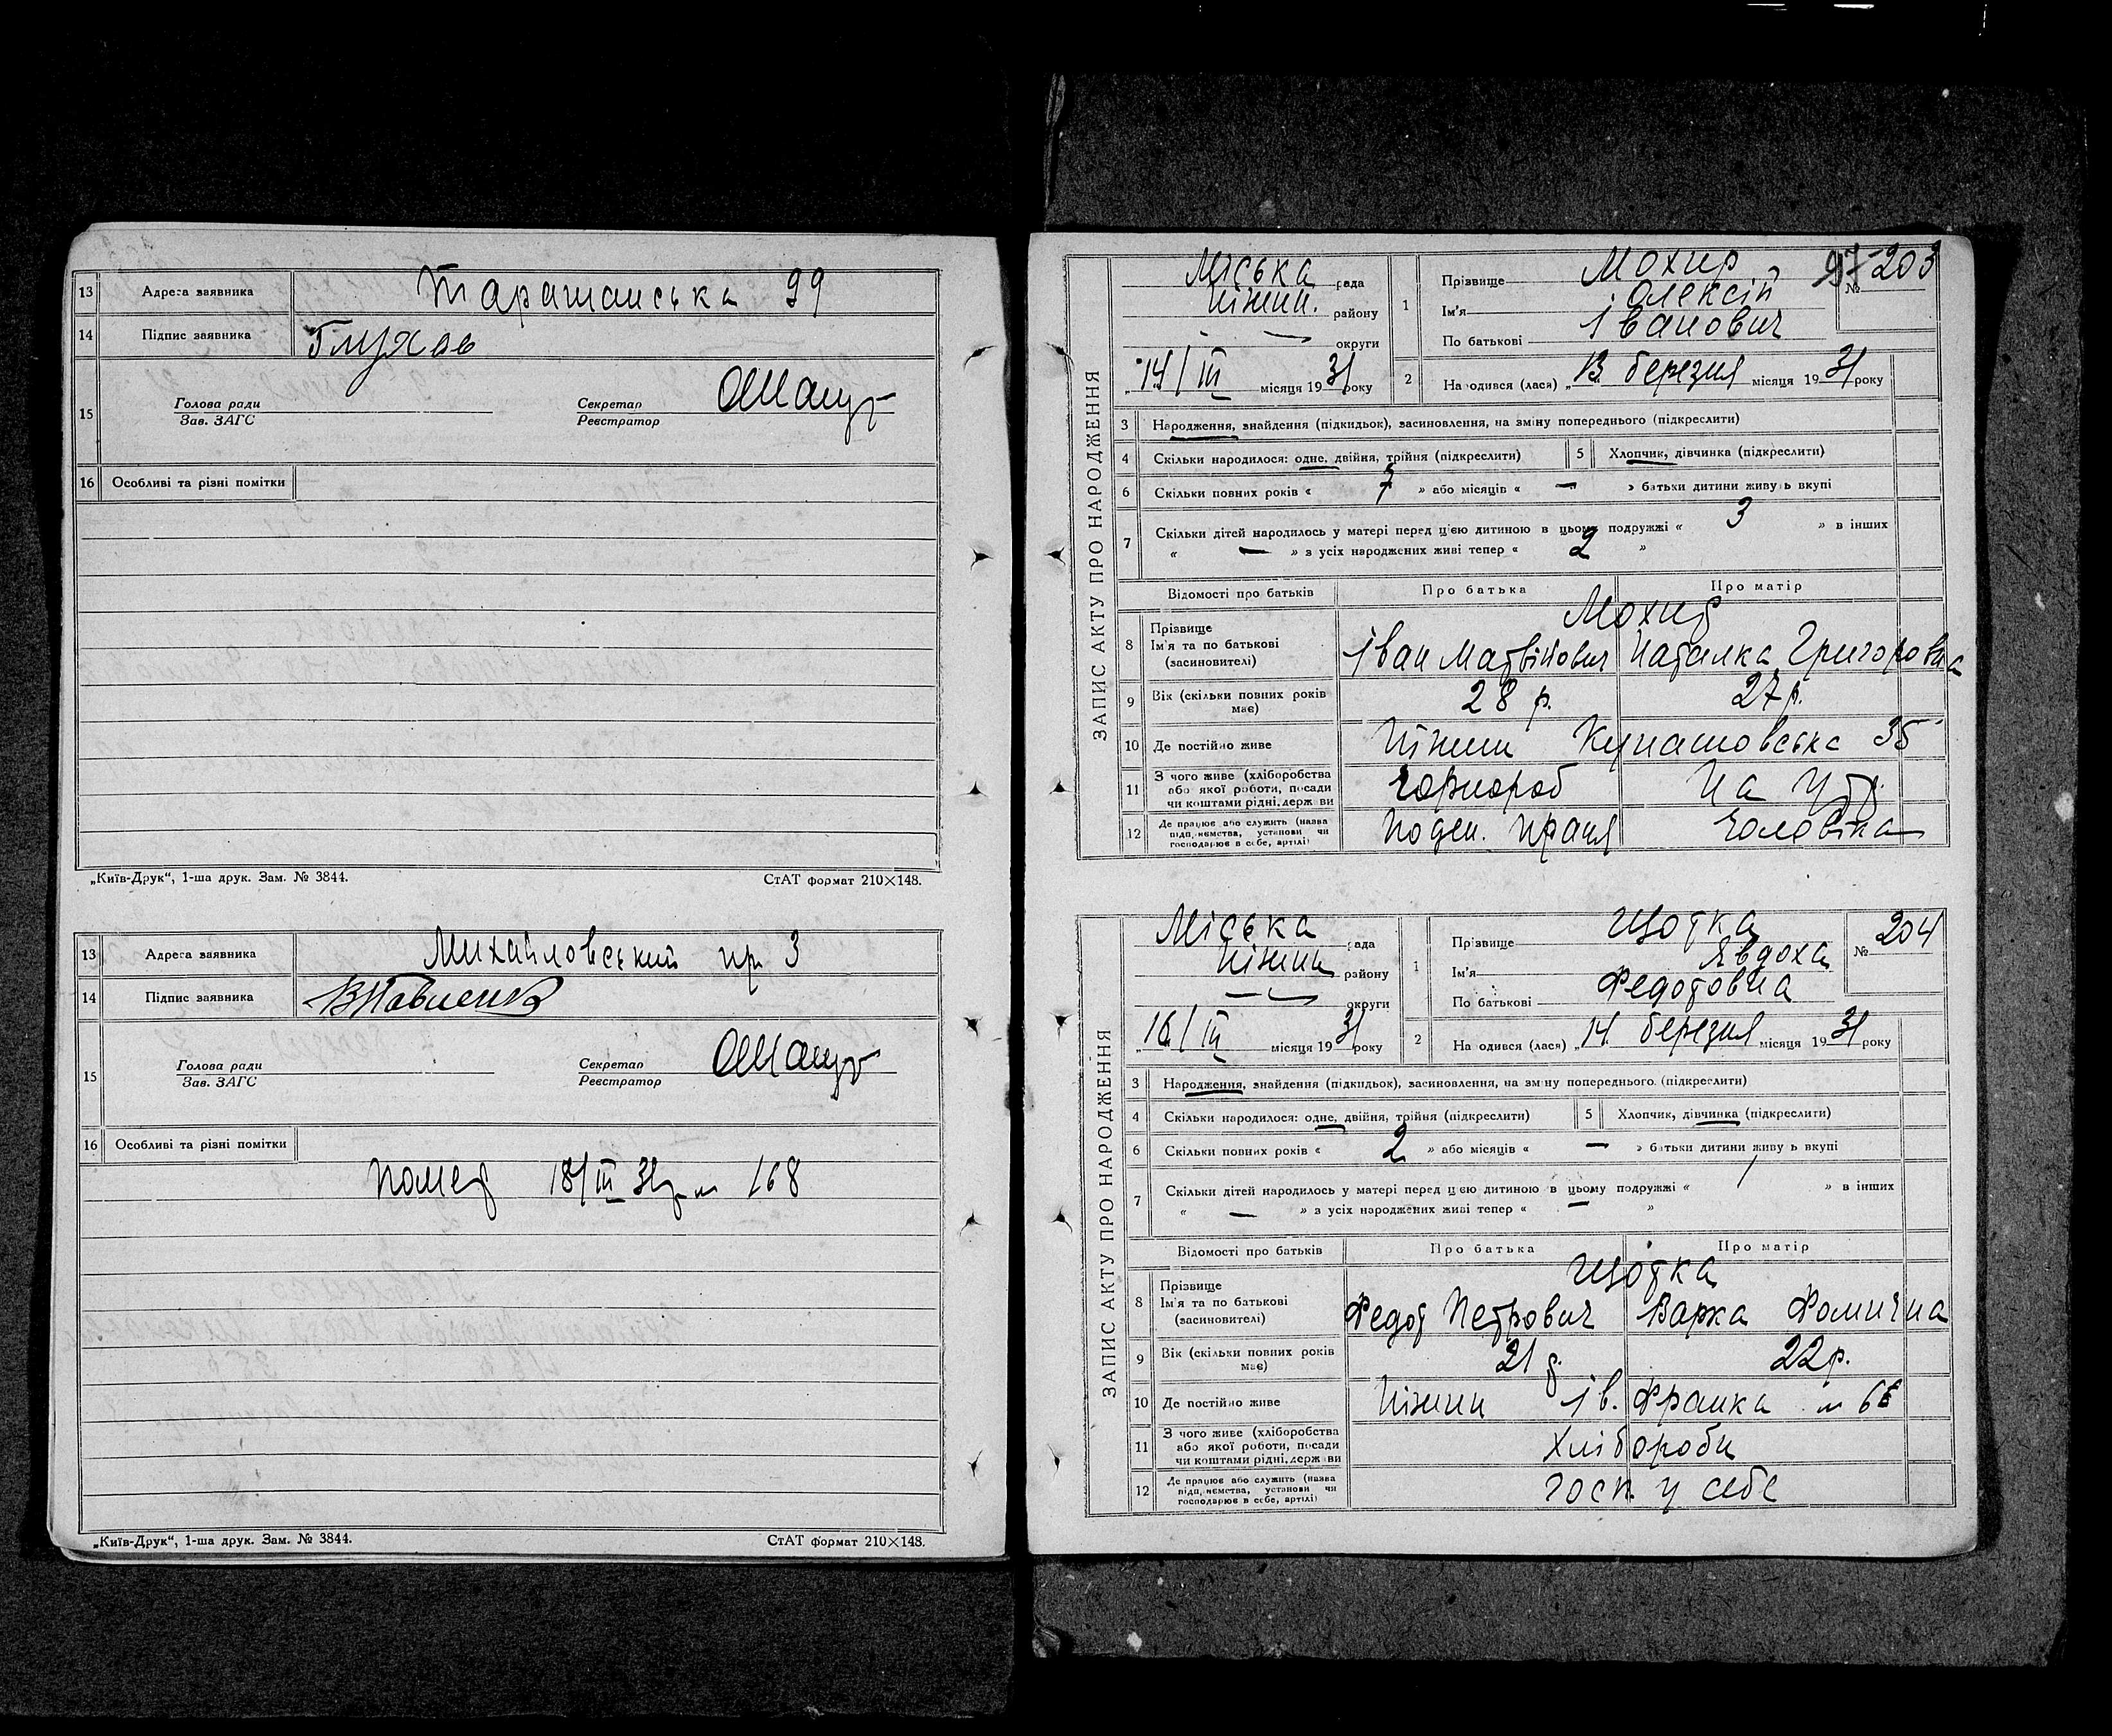 13 Адреса заявника Таращанська 99
14 Підпис заявника Глухов
15 Голова ради Секретар
Зав. ЗАГС Реєстратор
16 Особливі та різні помітки
„Київ-Друк“, 1-ша друк. Зам. № 3844. СтАТ формат 210×148.
13 Адреса заявника Михайловський пр 3
14 Підпис заявника
15 Голова ради Секретар
Зав. ЗАГС Реєстратор
16 Особливі та різні помітки
Помер 18/III 31р № 168
„Київ-Друк“, 1-ша друк. Зам. № 3844. СтАТ формат 210×148.
ЗАПИС АКТУ ПРО НАРОДЖЕННЯ
Міська рада
Ніжин. району
— округи
„14/III місяця 1931 року
1 Прізвище Мохир
Ім'я Олексій
По батькові Іванович
№ 97 203
2 На одився (лася) „13. березня місяця 1931 року
3 Народження, знайдення (підкидьок), засиновлення, на зміну попереднього (підкреслити)
4 Скільки народилося: одне, двійня, трійня (підкреслити) 5 Хлопчик, дівчинка (підкреслити)
6 Скільки повних років « 7 » або місяців « — » батьки дитини живуть вкупі
7 Скільки дітей народилось у матері перед цією дитиною в цьому подружжі « 3 » в інших
« — » з усіх народжених живі тепер « 2 »
Відомості про батьків Про батька Про матір
8 Прізвище Мохир
Ім'я та по батькові Іван Матвійович Наталка Григоровна
(засиновителі)
9 Вік (скільки повних років має) 28 р. 27 р.
10 Де постійно живе Ніжин Кунашовська 35
11 З чого живе (хліборобства або якої роботи, посади чи коштами рідні, держави Чорнороб На утр.
12 Де працює або служить (назва підприємства, установи чи господарює в себе, артілі) Поден. праця чоловіка
ЗАПИС АКТУ ПРО НАРОДЖЕННЯ
Міська рада
Ніжин району
— округи
„16/III місяця 1931 року
1 Прізвище Щотка
Ім'я Явдоха
По батькові Федотовна
№ 204
2 На одився (лася) „14. березня місяця 1931 року
3 Народження, знайдення (підкидьок), засиновлення, на зміну попереднього (підкреслити)
4 Скільки народилося: одне, двійня, трійня (підкреслити) 5 Хлопчик, дівчинка (підкреслити)
6 Скільки повних років « 2 » або місяців « — » батьки дитини живуть вкупі
7 Скільки дітей народилось у матері перед цією дитиною в цьому подружжі « 1 » в інших
« — » з усіх народжених живі тепер « — »
Відомості про батьків Про батька Про матір
8 Прізвище Щотка
Ім'я та по батькові Федот Петрович Варка Фомична
(засиновителі)
9 Вік (скільки повних років має) 21 р. 22 р.
10 Де постійно живе Ніжин Ів. Франка №
11 З чого живе (хліборобства або якої роботи, посади чи коштами рідні, держави Хлібороби
12 Де працює або служить (назва підприємства, установи чи господарює в себе, артілі) госп. у себе